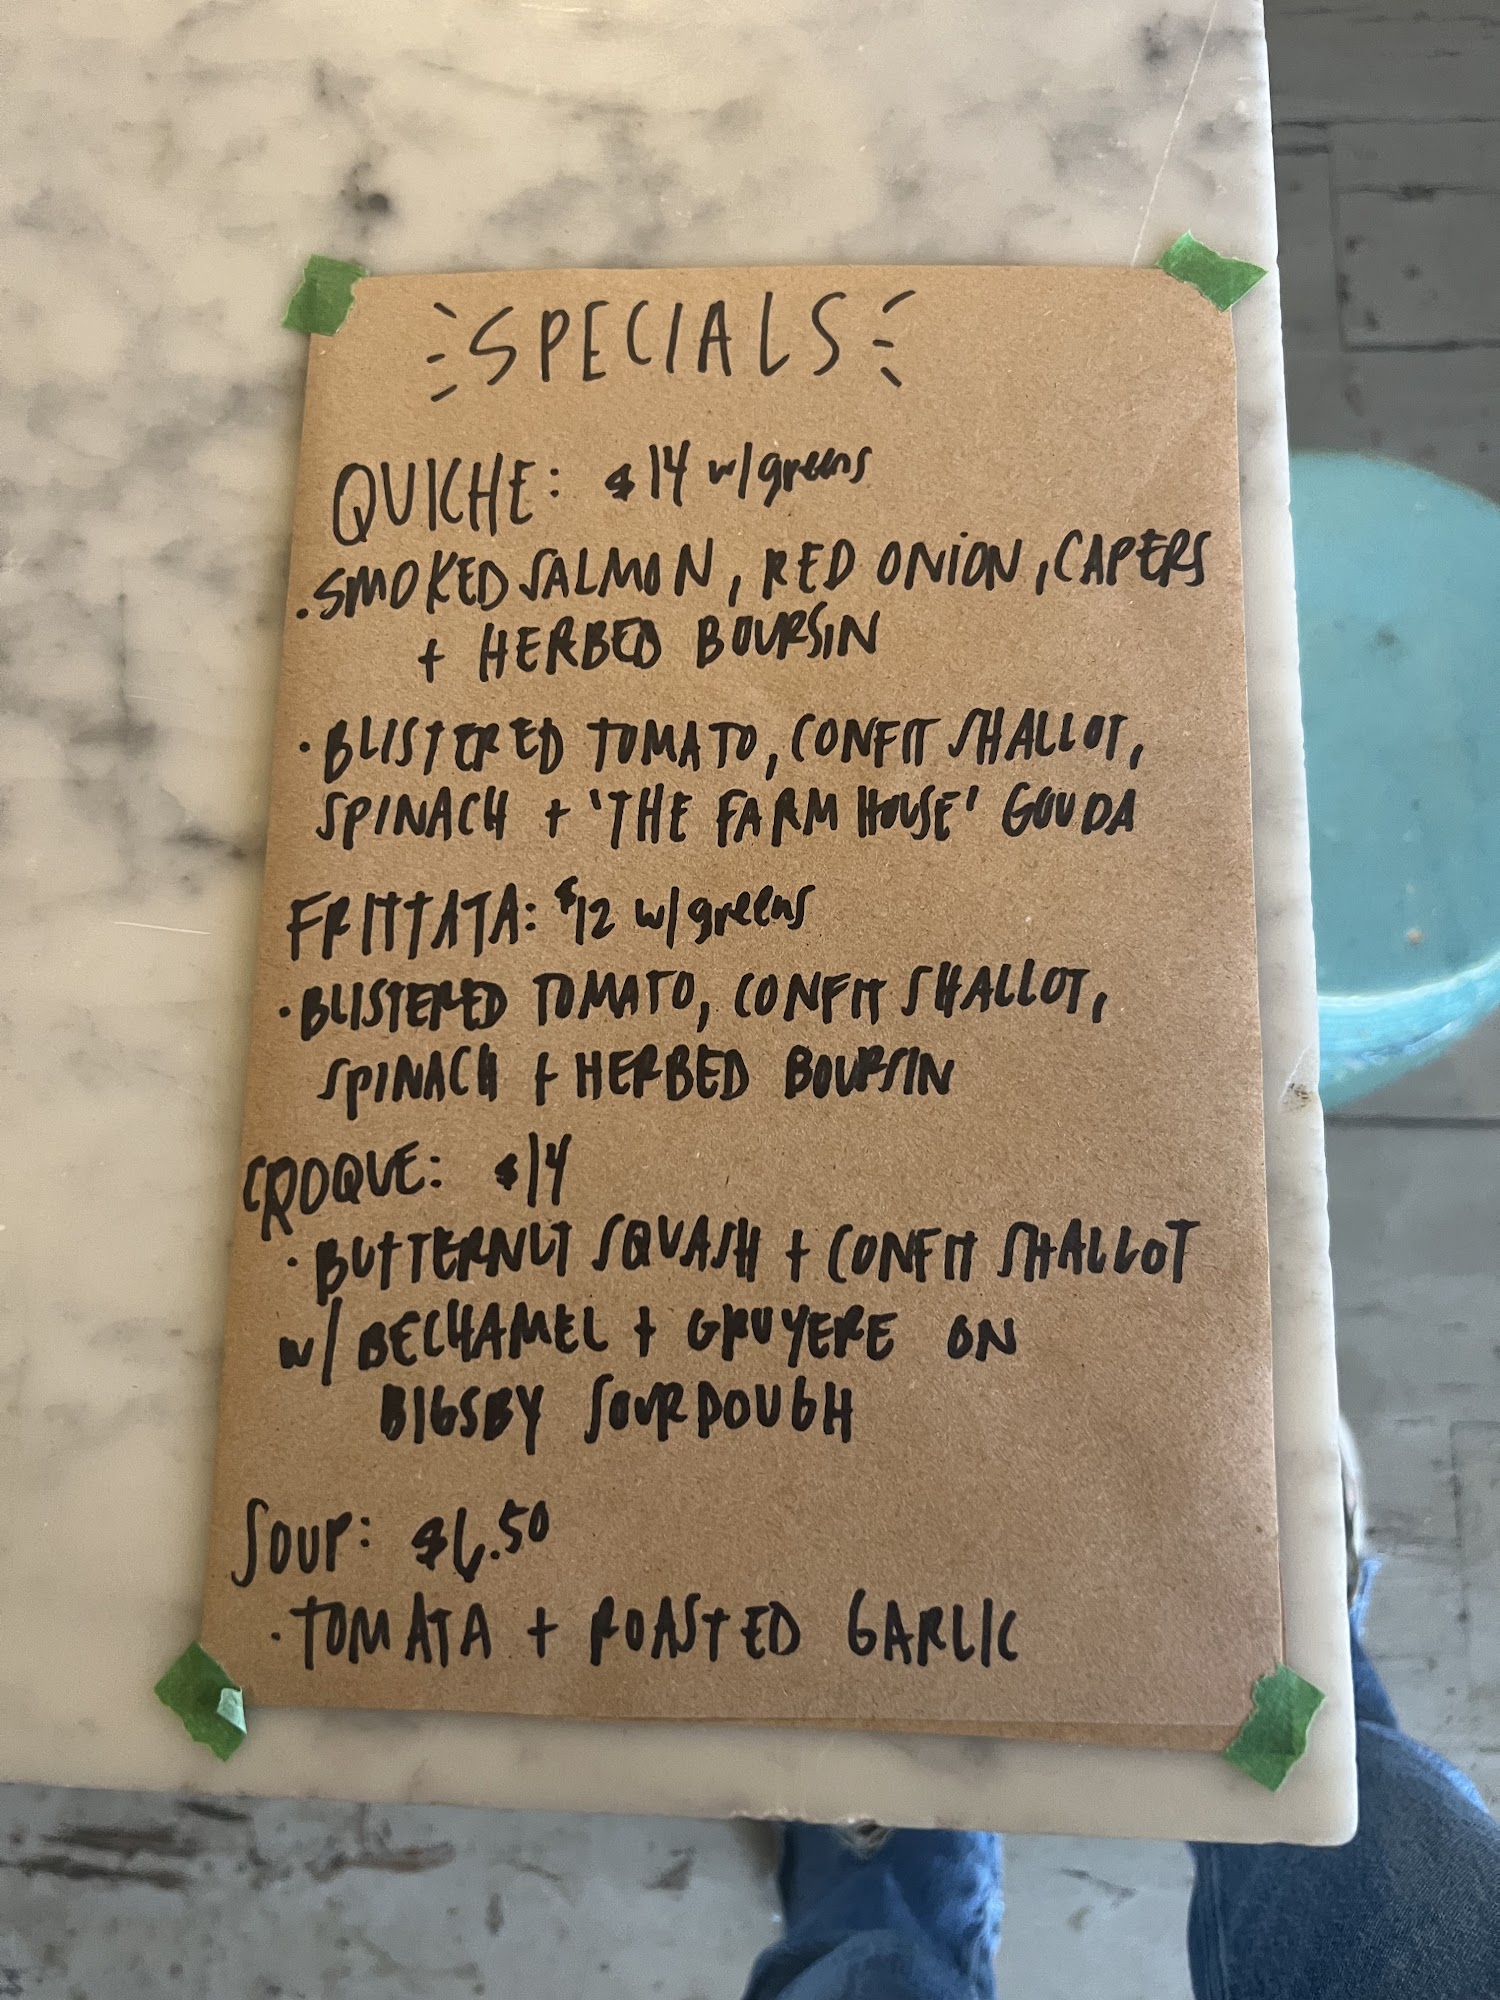 SPECIALS
QUICHE: $14 w/greens
· SMOKED SALMON, RED ONION, CAPERS
+ HERBED BOURSIN
· BLISTERED TOMATO, CONFIT SHALLOT,
SPINACH + 'THE FARM HOUSE' GOUDA
FRITTATA: $12 w/greens
· BLISTERED TOMATO, CONFIT SHALLOT,
SPINACH + HERBED BOURSIN
CROQUE: $14
· BUTTERNUT SQUASH + CONFIT SHALLOT
w/ BECHAMEL + GRUYERE ON
BIGSBY SOURDOUGH
SOUP: $6.50
· TOMATA + ROASTED GARLIC